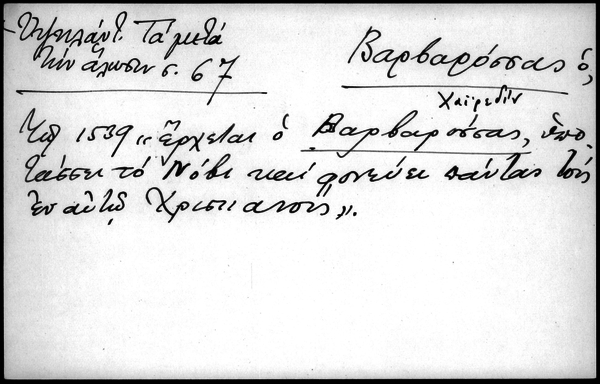 Ὑψηλάντ. Τά μετά
τήν ἅλωσιν σ. 67
Βαρβαρόσσας ὁ,
Χαϊρεδίν
Τῷ 1539 „ἔρχεται ὁ Βαρβαρόσσας, ὑπο-
τάσσει τό Νόβι καί φονεύει πάντας τούς
ἐν αὐτῷ Χριστιανούς„.